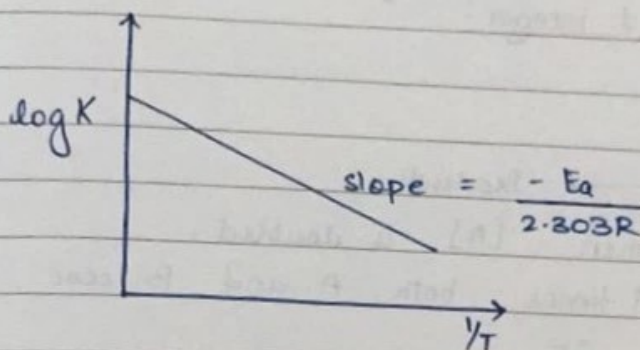 log K
slope = - Ea
2.303R
1/T